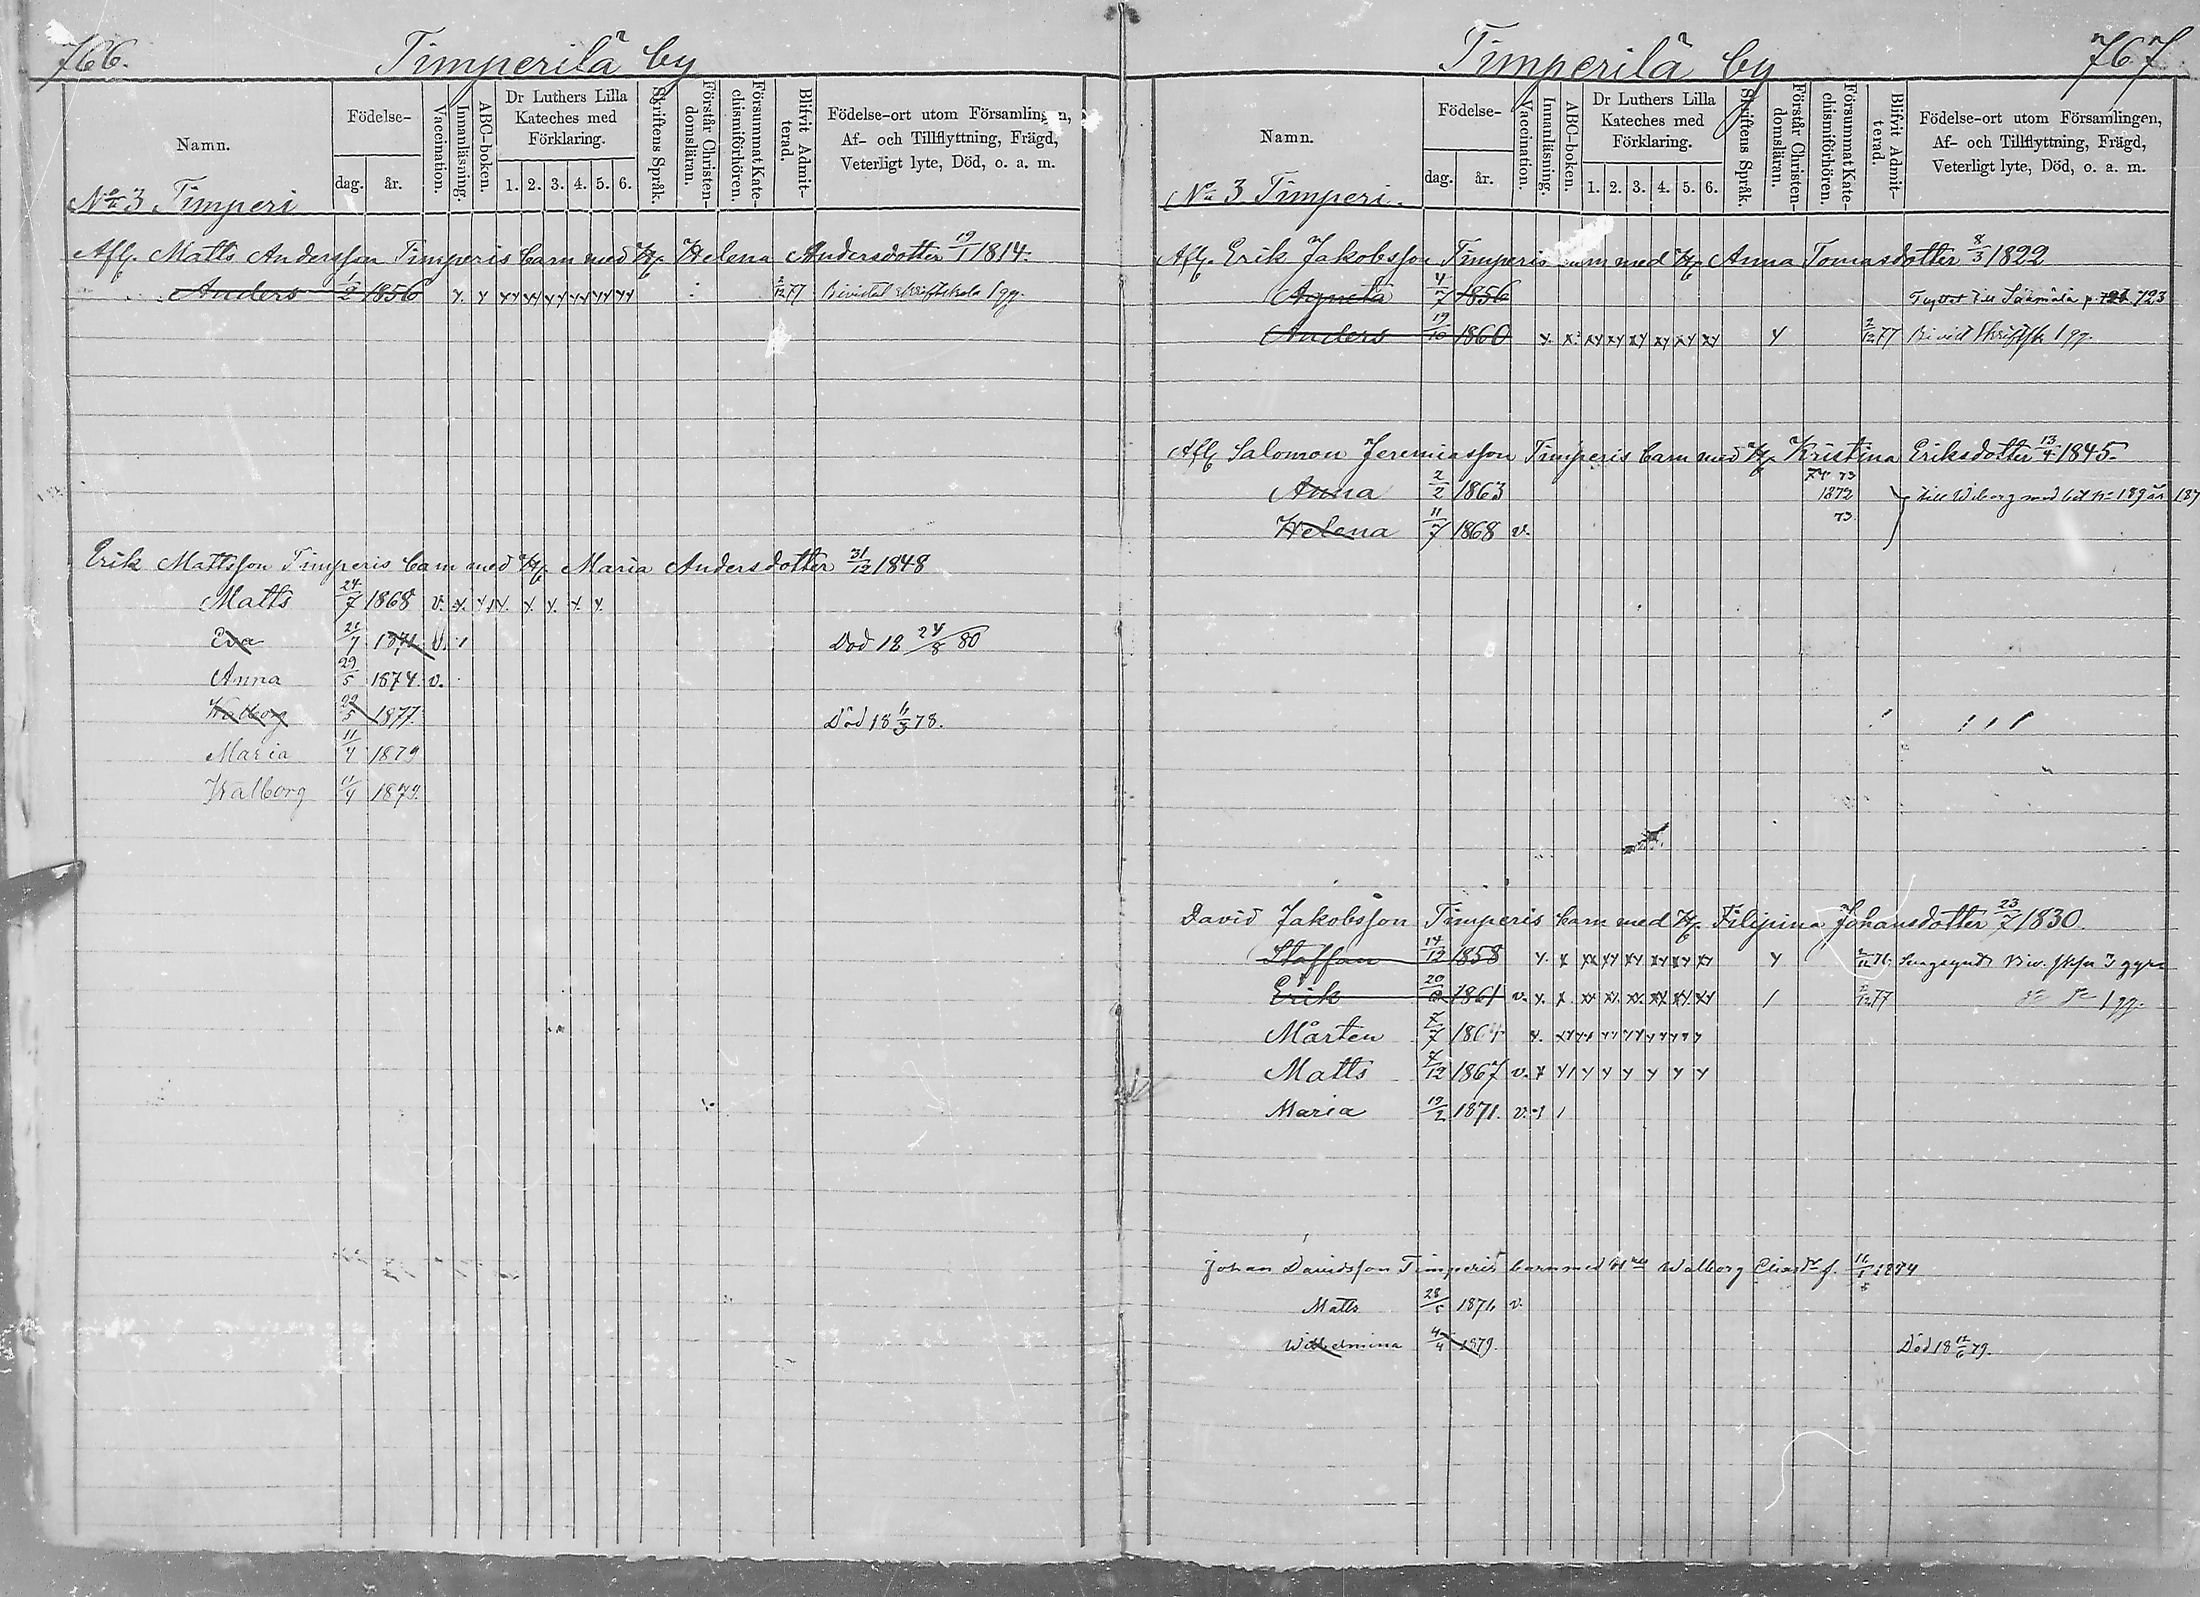 766.
Timperilä by
Namn.
Födelse-
dag.
år.
Vaccination.
Innanläsning.
ABC-boken.
Dr Luthers Lilla
Kateches med
Förklaring.
1. 2. 3. 4. 5. 6.
Skriftens Språk.
Förstår Christen-
domsläran.
Försummat Kate-
chismiförhören.
Blifvit Admit-
terad.
Födelse-ort utom Församlingen,
Af- och Tillflyttning, Frägd,
Veterligt lyte, Död, o. a. m.
No 3 Timperi
Afl. Matts Andersson Timperis barn med H. Helena Andersdotter 19/1 1814.
Anders 1/2 1856 2/12 77 Bivistat skriftskola 1 gg.
Erik Mattsson Timperis barn med H. Maria Andersdotter 31/12 1848
Matts 24/7 1868 v.
Eva 21/7 1871 v. Död 18 24/8 80
Anna 29/5 1874. v.
Walborg 22/5 1877 Död 18 11/3 78.
Maria 11/4 1879
Walborg 11/4 1879.
Timperilä by
767
Namn.
Födelse-
dag.
år.
Vaccination.
Innanläsning.
ABC-boken.
Dr Luthers Lilla
Kateches med
Förklaring.
1. 2. 3. 4. 5. 6.
Skriftens Språk.
Förstår Christen-
domsläran.
Försummat Kate-
chismiförhören.
Blifvit Admit-
terad.
Födelse-ort utom Församlingen,
Af- och Tillflyttning, Frägd,
Veterligt lyte, Död, o. a. m.
No 3 Timperi.
Afl. Erik Jakobsson Timperis barn med H. Anna Tomasdotter 8/3 1822
Agneta 4/7 1856 723
Anders 19/10 1860 2/12 77 1 gg.
Afl. Salomon Jeremiasson Timperis barn med H. Kristina Eriksdotter 13/4 1845.
Anna 2/2 1863 1872 till Wiborg med
Helena 11/7 1868 v. 73
David Jakobsson Timperis barn med H. Filipina Johansdotter 23/7 1830.
Staffan 14/12 1858 3 ggr
Erik 1861 v. 2/12 77 1 gg.
Mårten 7/7 1864
Matts 4/12 1867 v.
Maria 19/2 1871. v.
Johan Davidsson Timperis barn med H Walborg f.
Matts 28/5 1876 v.
Wilhelmina 4/4 1879. Död 18 12/6 79.